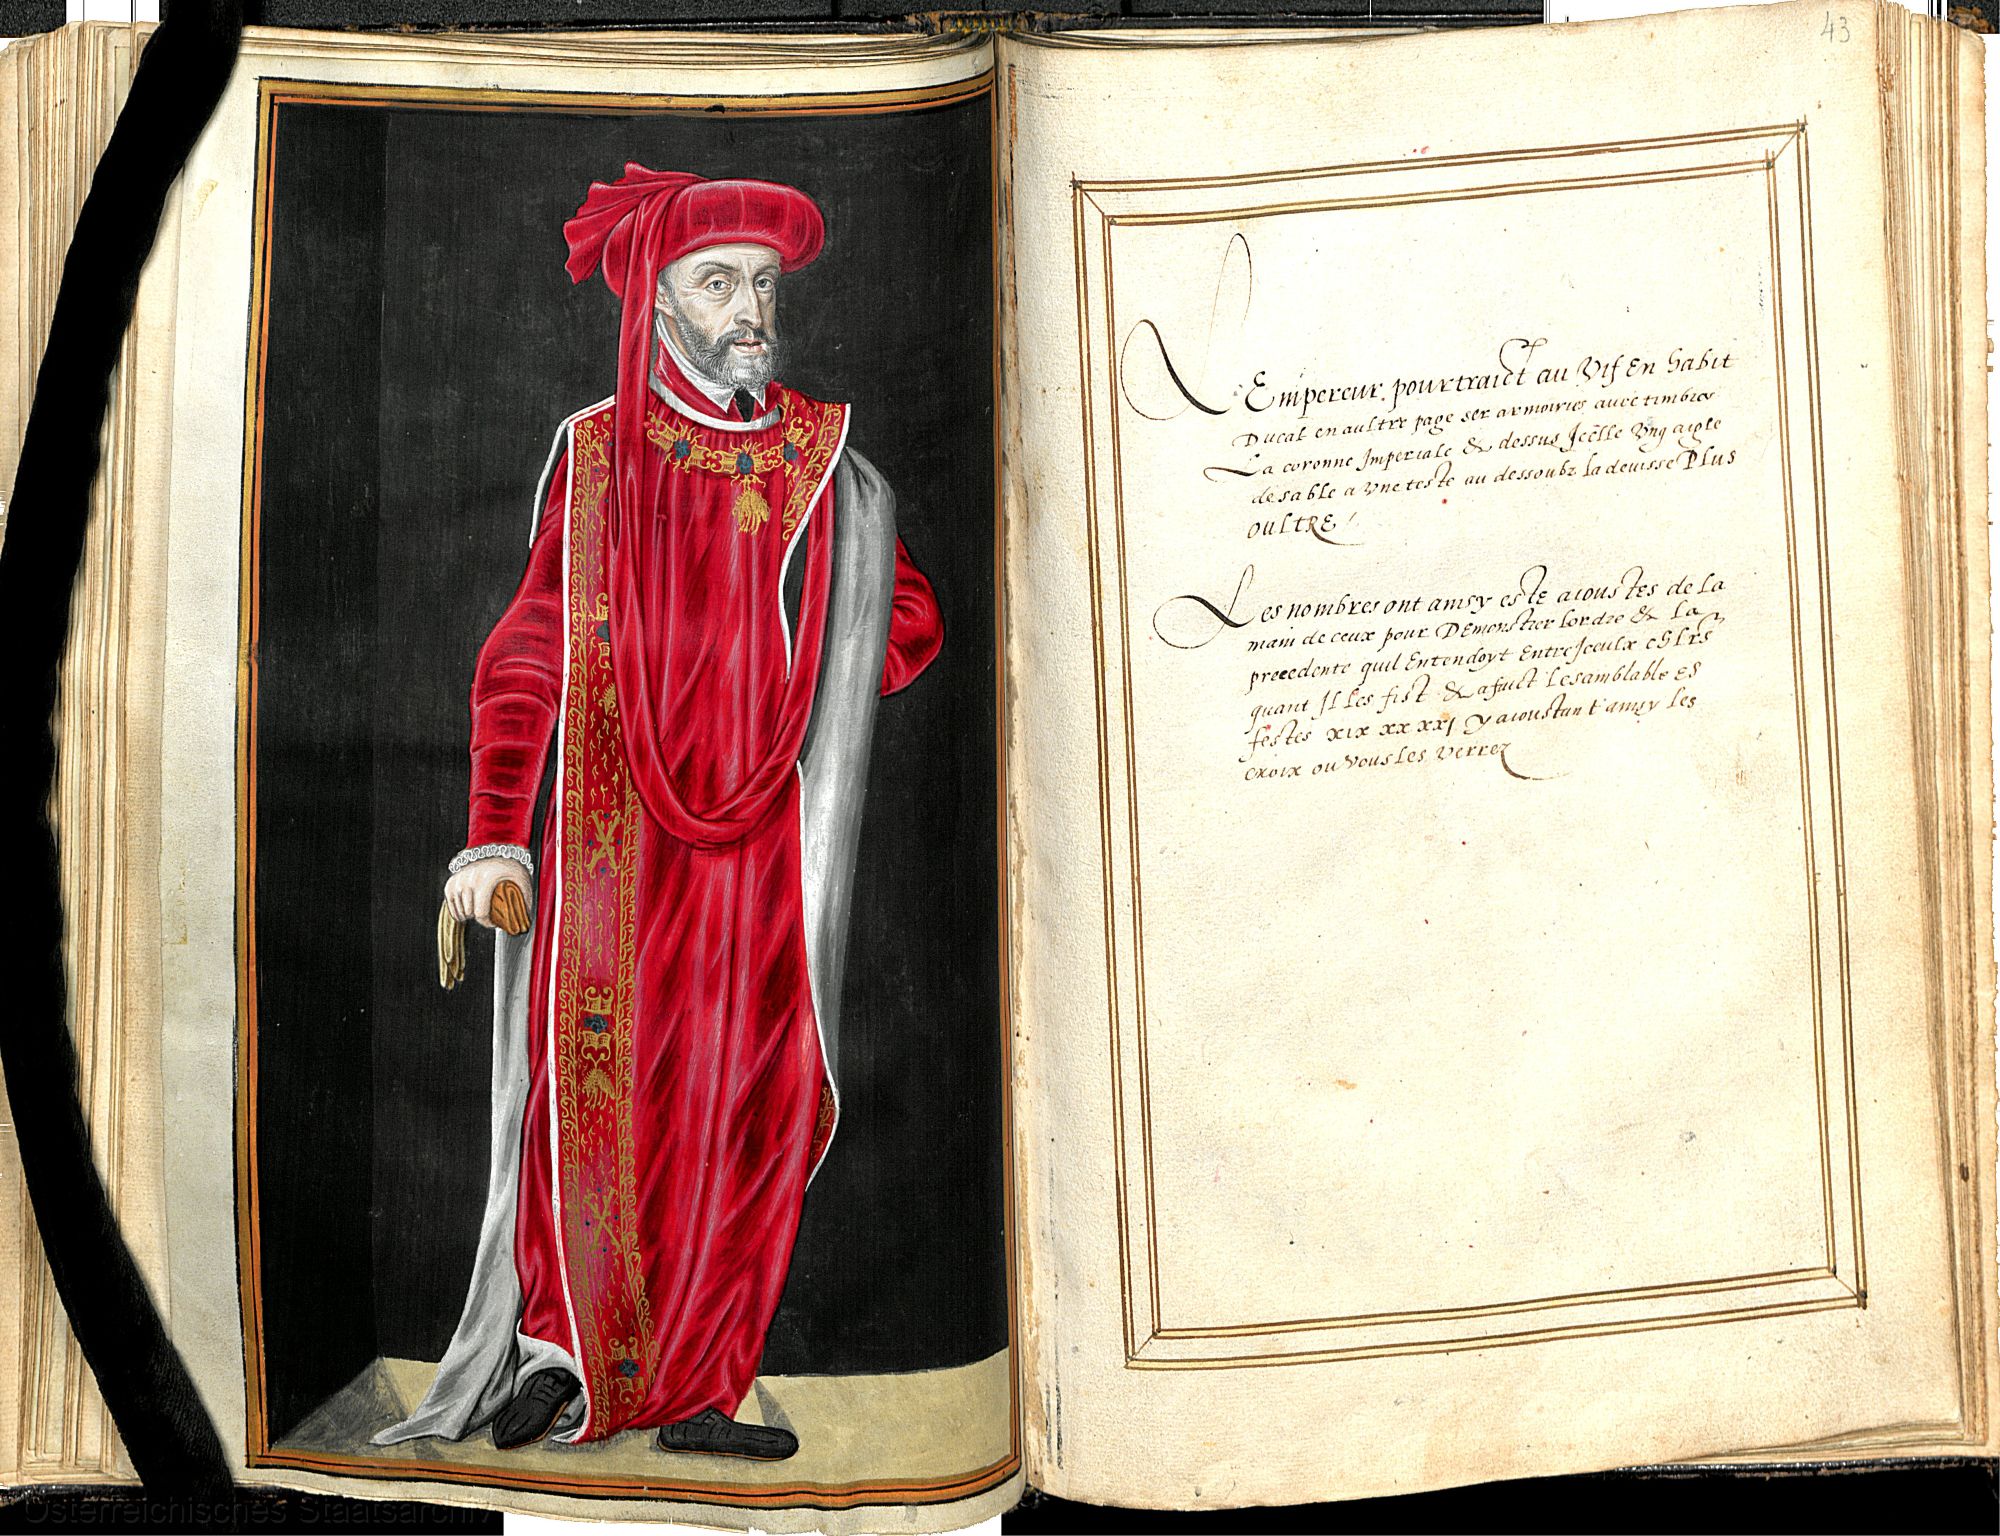 43
L'Empereur pourtraict au Vif En habit
Ducal en aultre page ser armoiries avec timbres
La coronne Imperiale & dessus Jcelle Vng aigle
de sable a Vne teste au dessoubz la devisse PLUS
OULTRE
Les nombres ont ainsy este aioustes de la
main de ceux pour Demonstrer lordre & La
precedente quil Entendoyt Entre Jceulx
quant Il Les fist & a faict Lesamblable es
festes xix xx xxj y aioustant ainsy les
croix ou Vous les verrez
Österreichisches Staatsarchiv